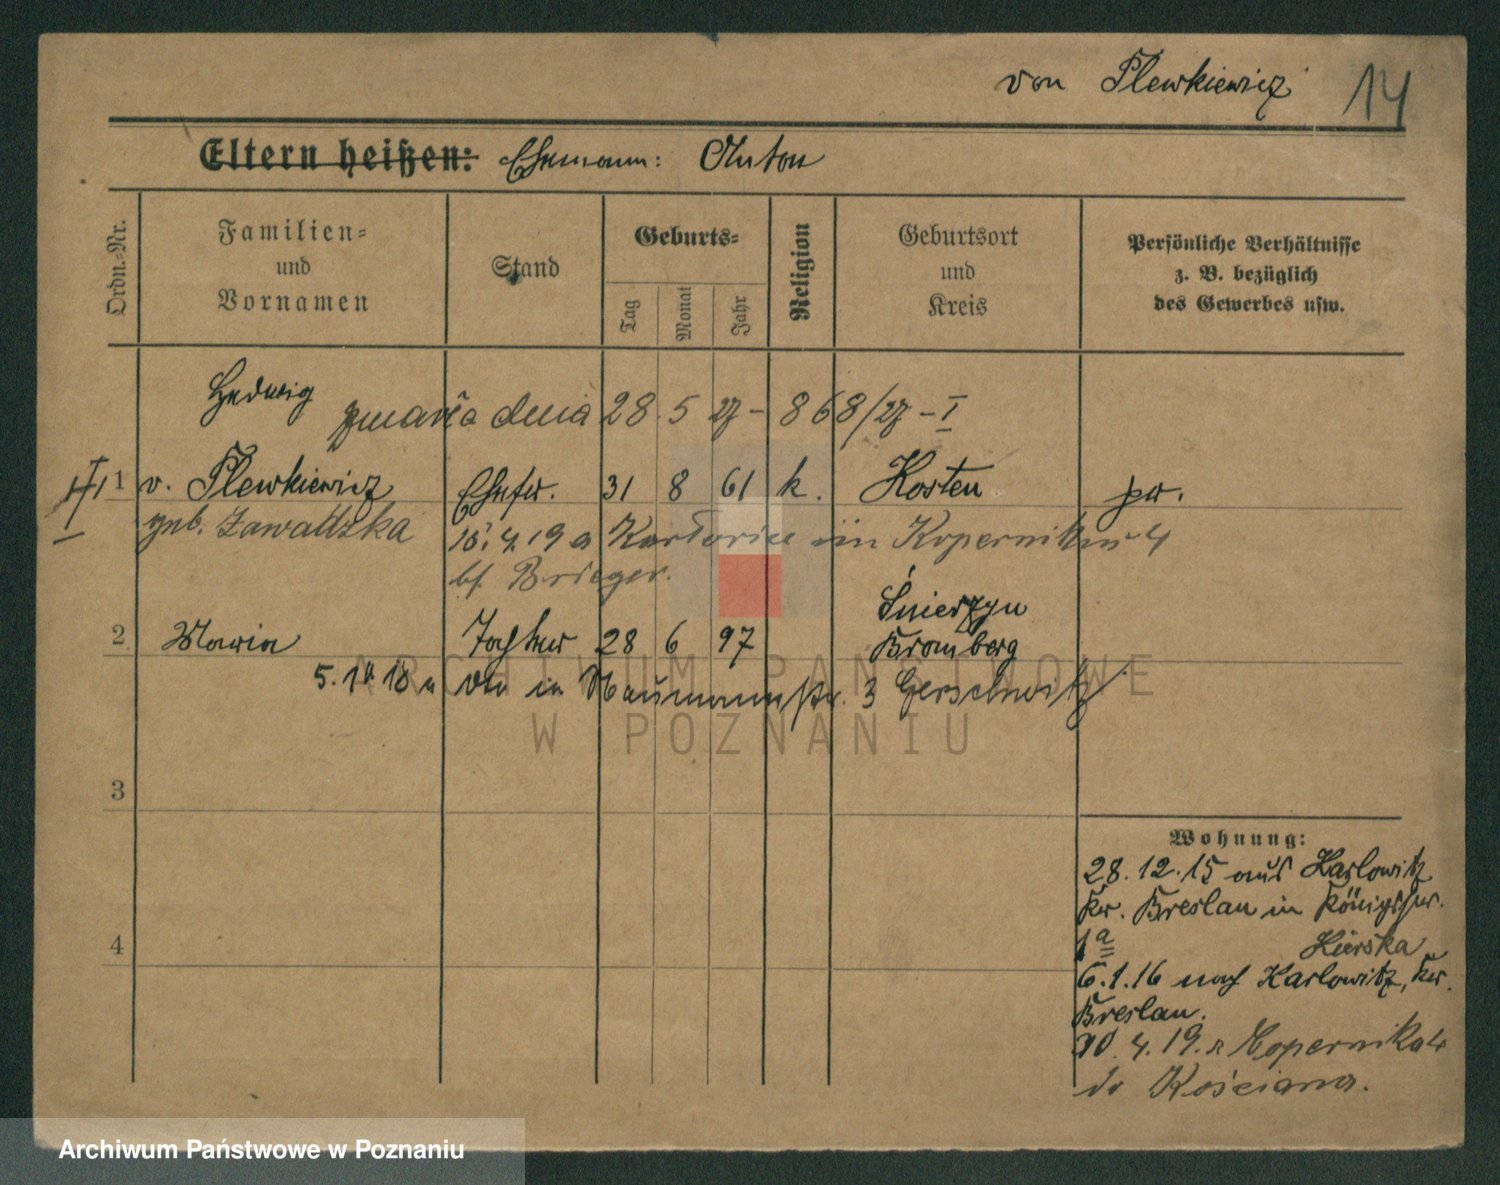 von Plewkiewicz 14
Eltern heißen: Ehemann: Anton
Ordn.=Nr.
Familien=
und
Vornamen
Stand
Geburts=
Tag
Monat
Jahr
Religion
Geburtsort
und
Kreis
Persönliche Verhältnisse
z. B. bezüglich
des Gewerbes usw.
Hedwig
zmarła dnia 28 5 27 - 868/27 - I
1 v. Plewkiewicz Ehefr. 31 8 61 k. Kosten pr.
geb. Zawadzka
15. 4. 19 a in Kopernikus 4
bf. Brieger.
2 Maria Tochter 28 6 97
Bromberg
5. 18 in Naumannstr. 3
3
4
Wohnung:
28. 12. 15 aus Karlowitz
Kr. Breslau in
1a
6. 1. 16 nach Karlowitz, Kr.
Breslau.
4. 19. z Kopernika 4
do Kościana.
ARCHIWUM PAŃSTWOWE
W POZNANIU
Archiwum Państwowe w Poznaniu